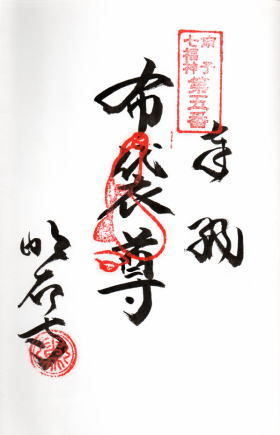 南予
七福神
第五番
奉拝
布袋尊
明石寺